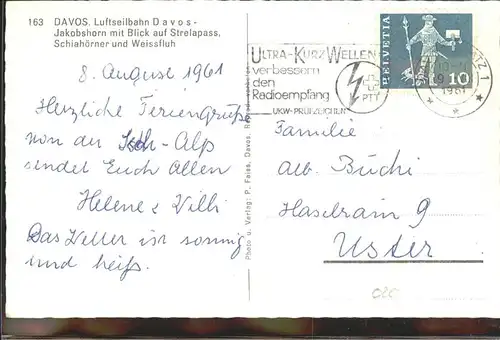 163 DAVOS. Luftseilbahn Davos-
Jakobshorn mit Blick auf Strelapass,
Schiahörner und Weissfluh
8. August 1961
Herzliche Feriengrüße
von der Isch-Alp
sendet Euch Allen
Helene & Willi
Das Wetter ist sonnig
und heiß.
Photo u. Verlag: P. Faiss, Davos.
ULTRA-KURZ WELLEN
verbessern
den
Radioempfang
UKW-PRÜFZEICHEN
PTT
HELVETIA
10
1961
Familie
Alb. Büchi
Haselrain 9
Uster